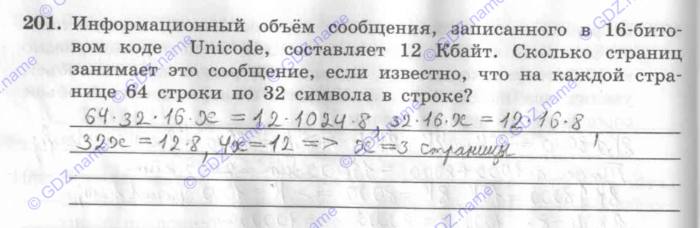 201. Информационный объём сообщения, записанного в 16-бито-
вом коде Unicode, составляет 12 Кбайт. Сколько страниц
занимает это сообщение, если известно, что на каждой стра-
нице 64 строки по 32 символа в строке?
64·32·16·x = 12·1024·8, 32·16·x = 12·16·8
32x = 12·8, 4x = 12 => x = 3 страницы
© GDZ.name